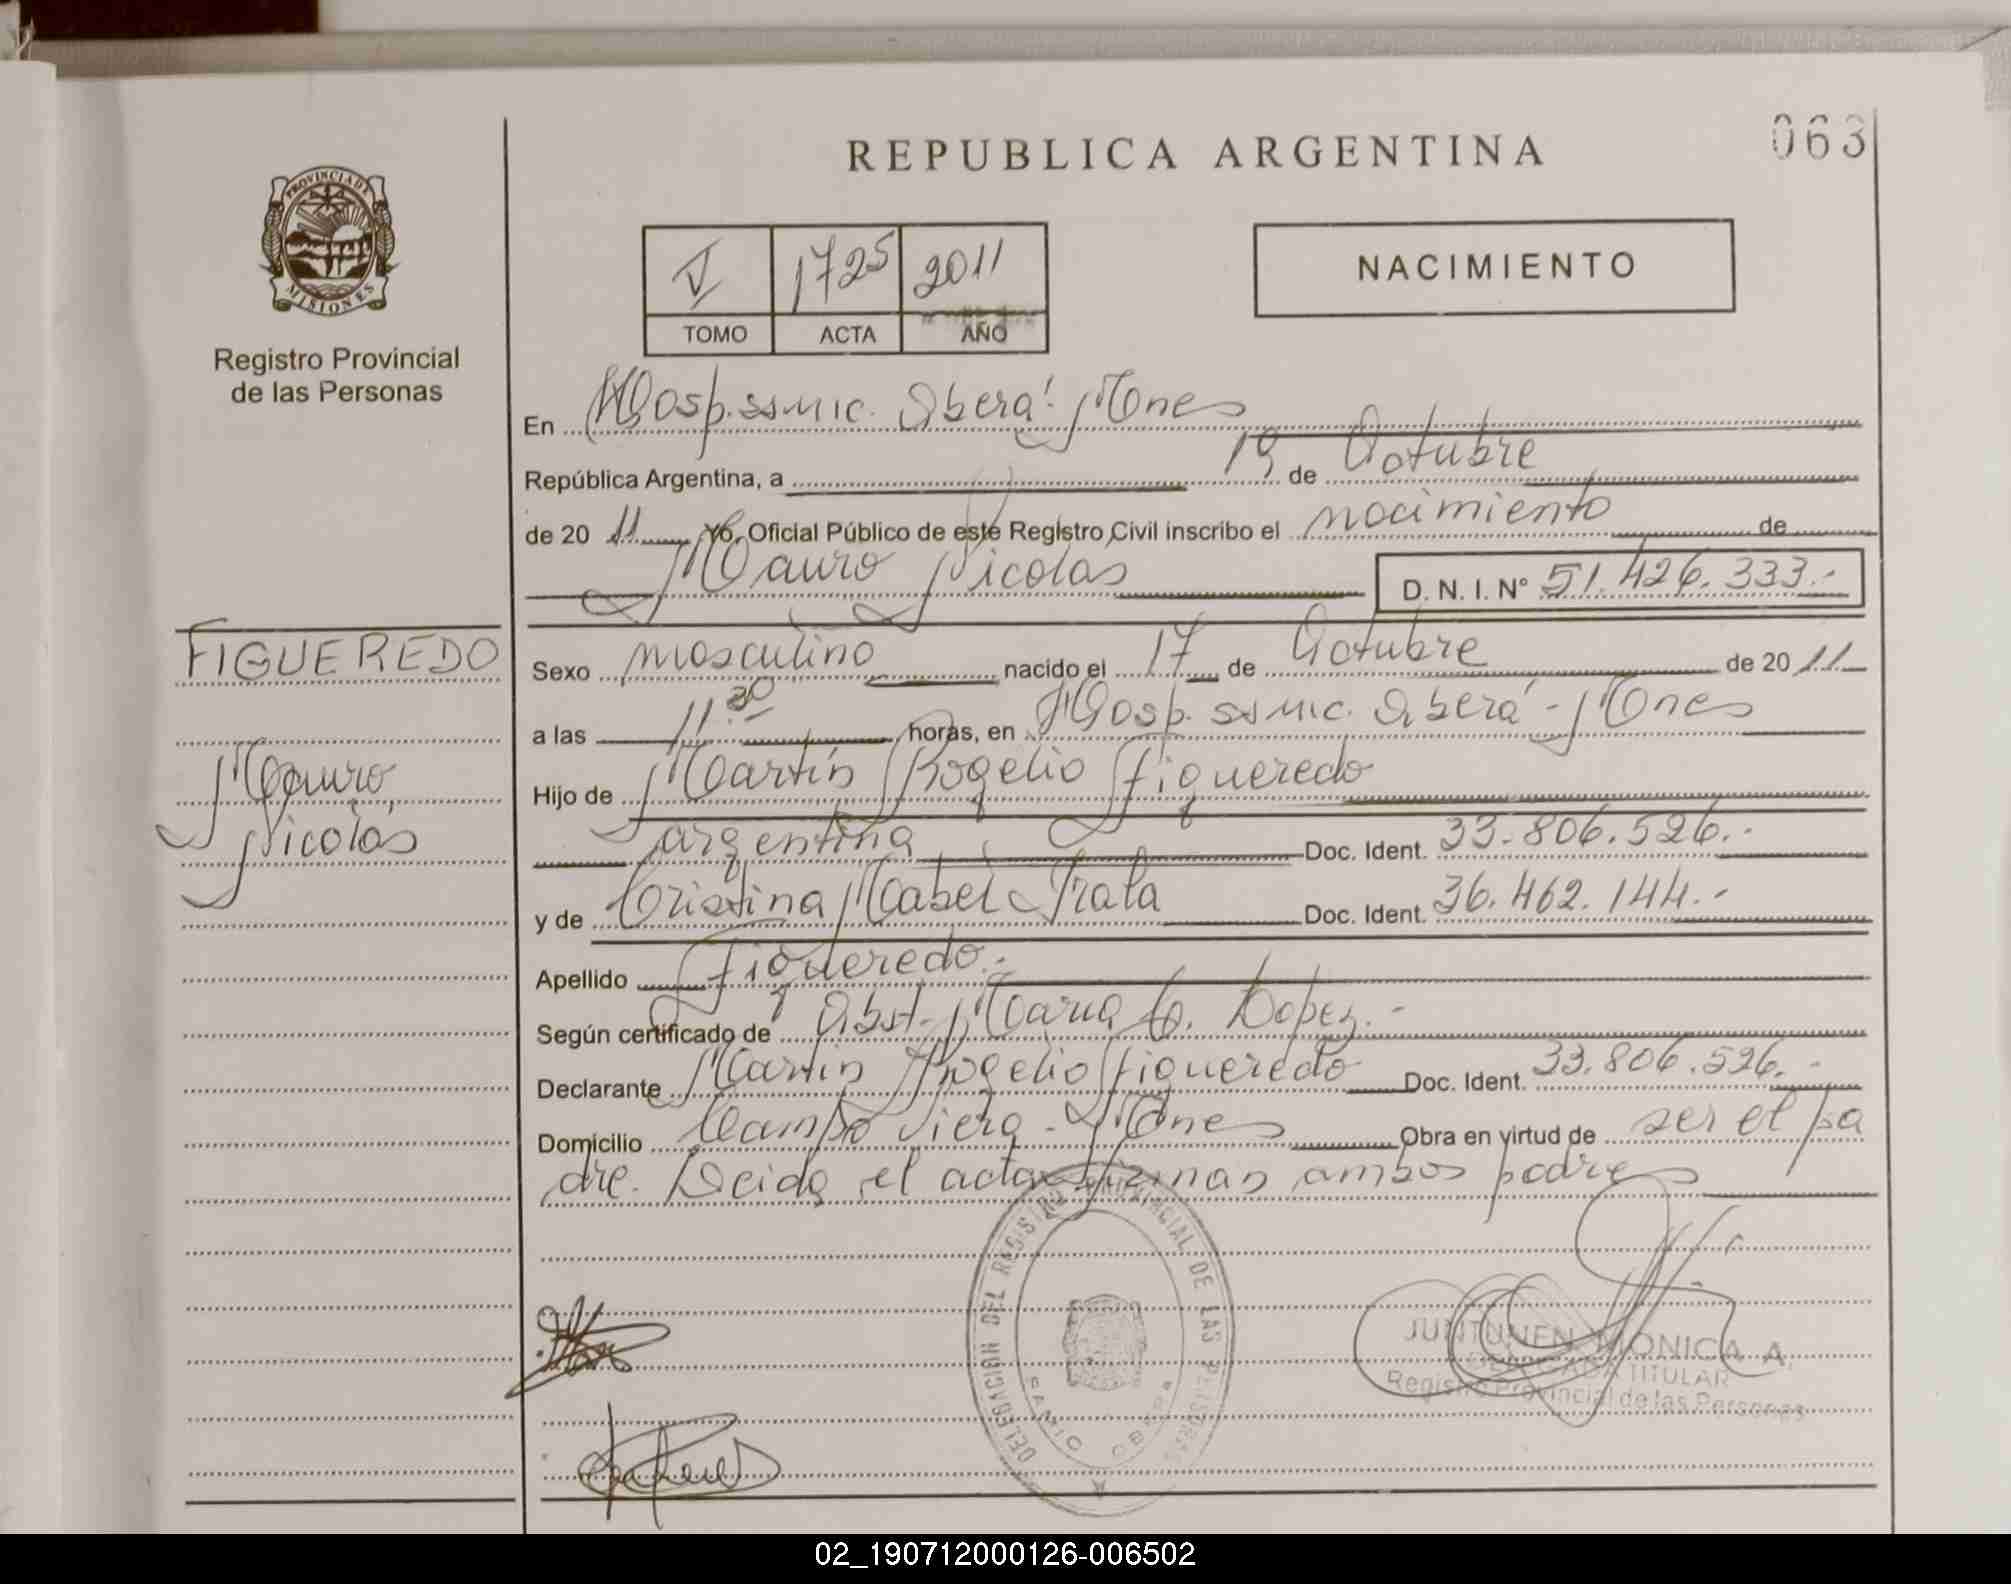 063
REPUBLICA ARGENTINA
PROVINCIA DE MISIONES
Registro Provincial
de las Personas
V 1725 2011
TOMO ACTA AÑO
NACIMIENTO
En Hosp. ssmic. Oberá - Mones
República Argentina, a 19 de Octubre
de 20 11 Yo, Oficial Público de este Registro Civil inscribo el nacimiento de
Mauro Nicolas D. N. I. Nº 51.426.333.-
FIGUEREDO
Mauro
Nicolás
Sexo masculino nacido el 17 de Octubre de 20 11
a las 11.30 horas, en Hosp. ssmic. Oberá - Mones
Hijo de Martín Rogelio Figueredo
argentina Doc. Ident. 33.806.526.-
y de Cristina Mabel Doc. Ident. 36.462.144.-
Apellido Figueredo.-
Según certificado de Obst. Maria C. Lopez.-
Declarante Martin Rogelio Figueredo Doc. Ident. 33.806.526.-
Domicilio Campo Viera - Mones Obra en virtud de ser el pa
dre. Leida el acta firman ambos padres
DELEGACION DEL REGISTRO PROVINCIAL DE LAS PERSONAS
OBERA
JUNTUNEN MONICA A.
DELEGADA TITULAR
Registro Provincial de las Personas
02_190712000126-006502